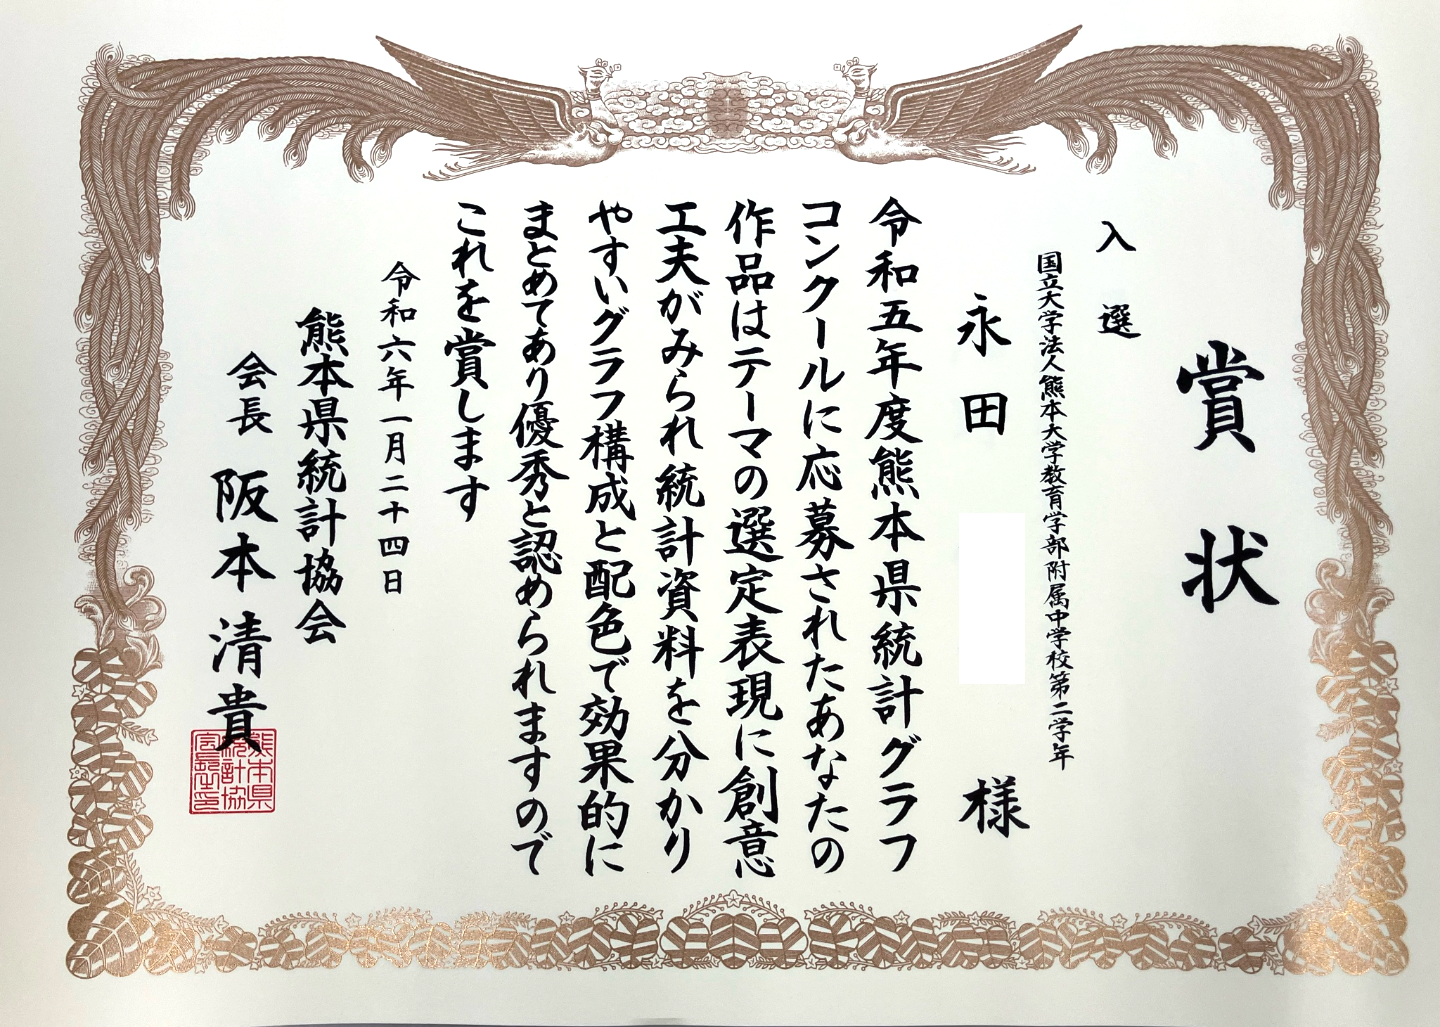 賞状
入選
国立大学法人熊本大学教育学部附属中学校第二学年
永田 様
令和五年度熊本県統計グラフ
コンクールに応募されたあなたの
作品はテーマの選定表現に創意
工夫がみられ統計資料を分かり
やすいグラフ構成と配色で効果的に
まとめてあり優秀と認められますので
これを賞します
令和六年一月二十四日
熊本県統計協会
会長 阪本清貴
熊本県
統計協
会長之印